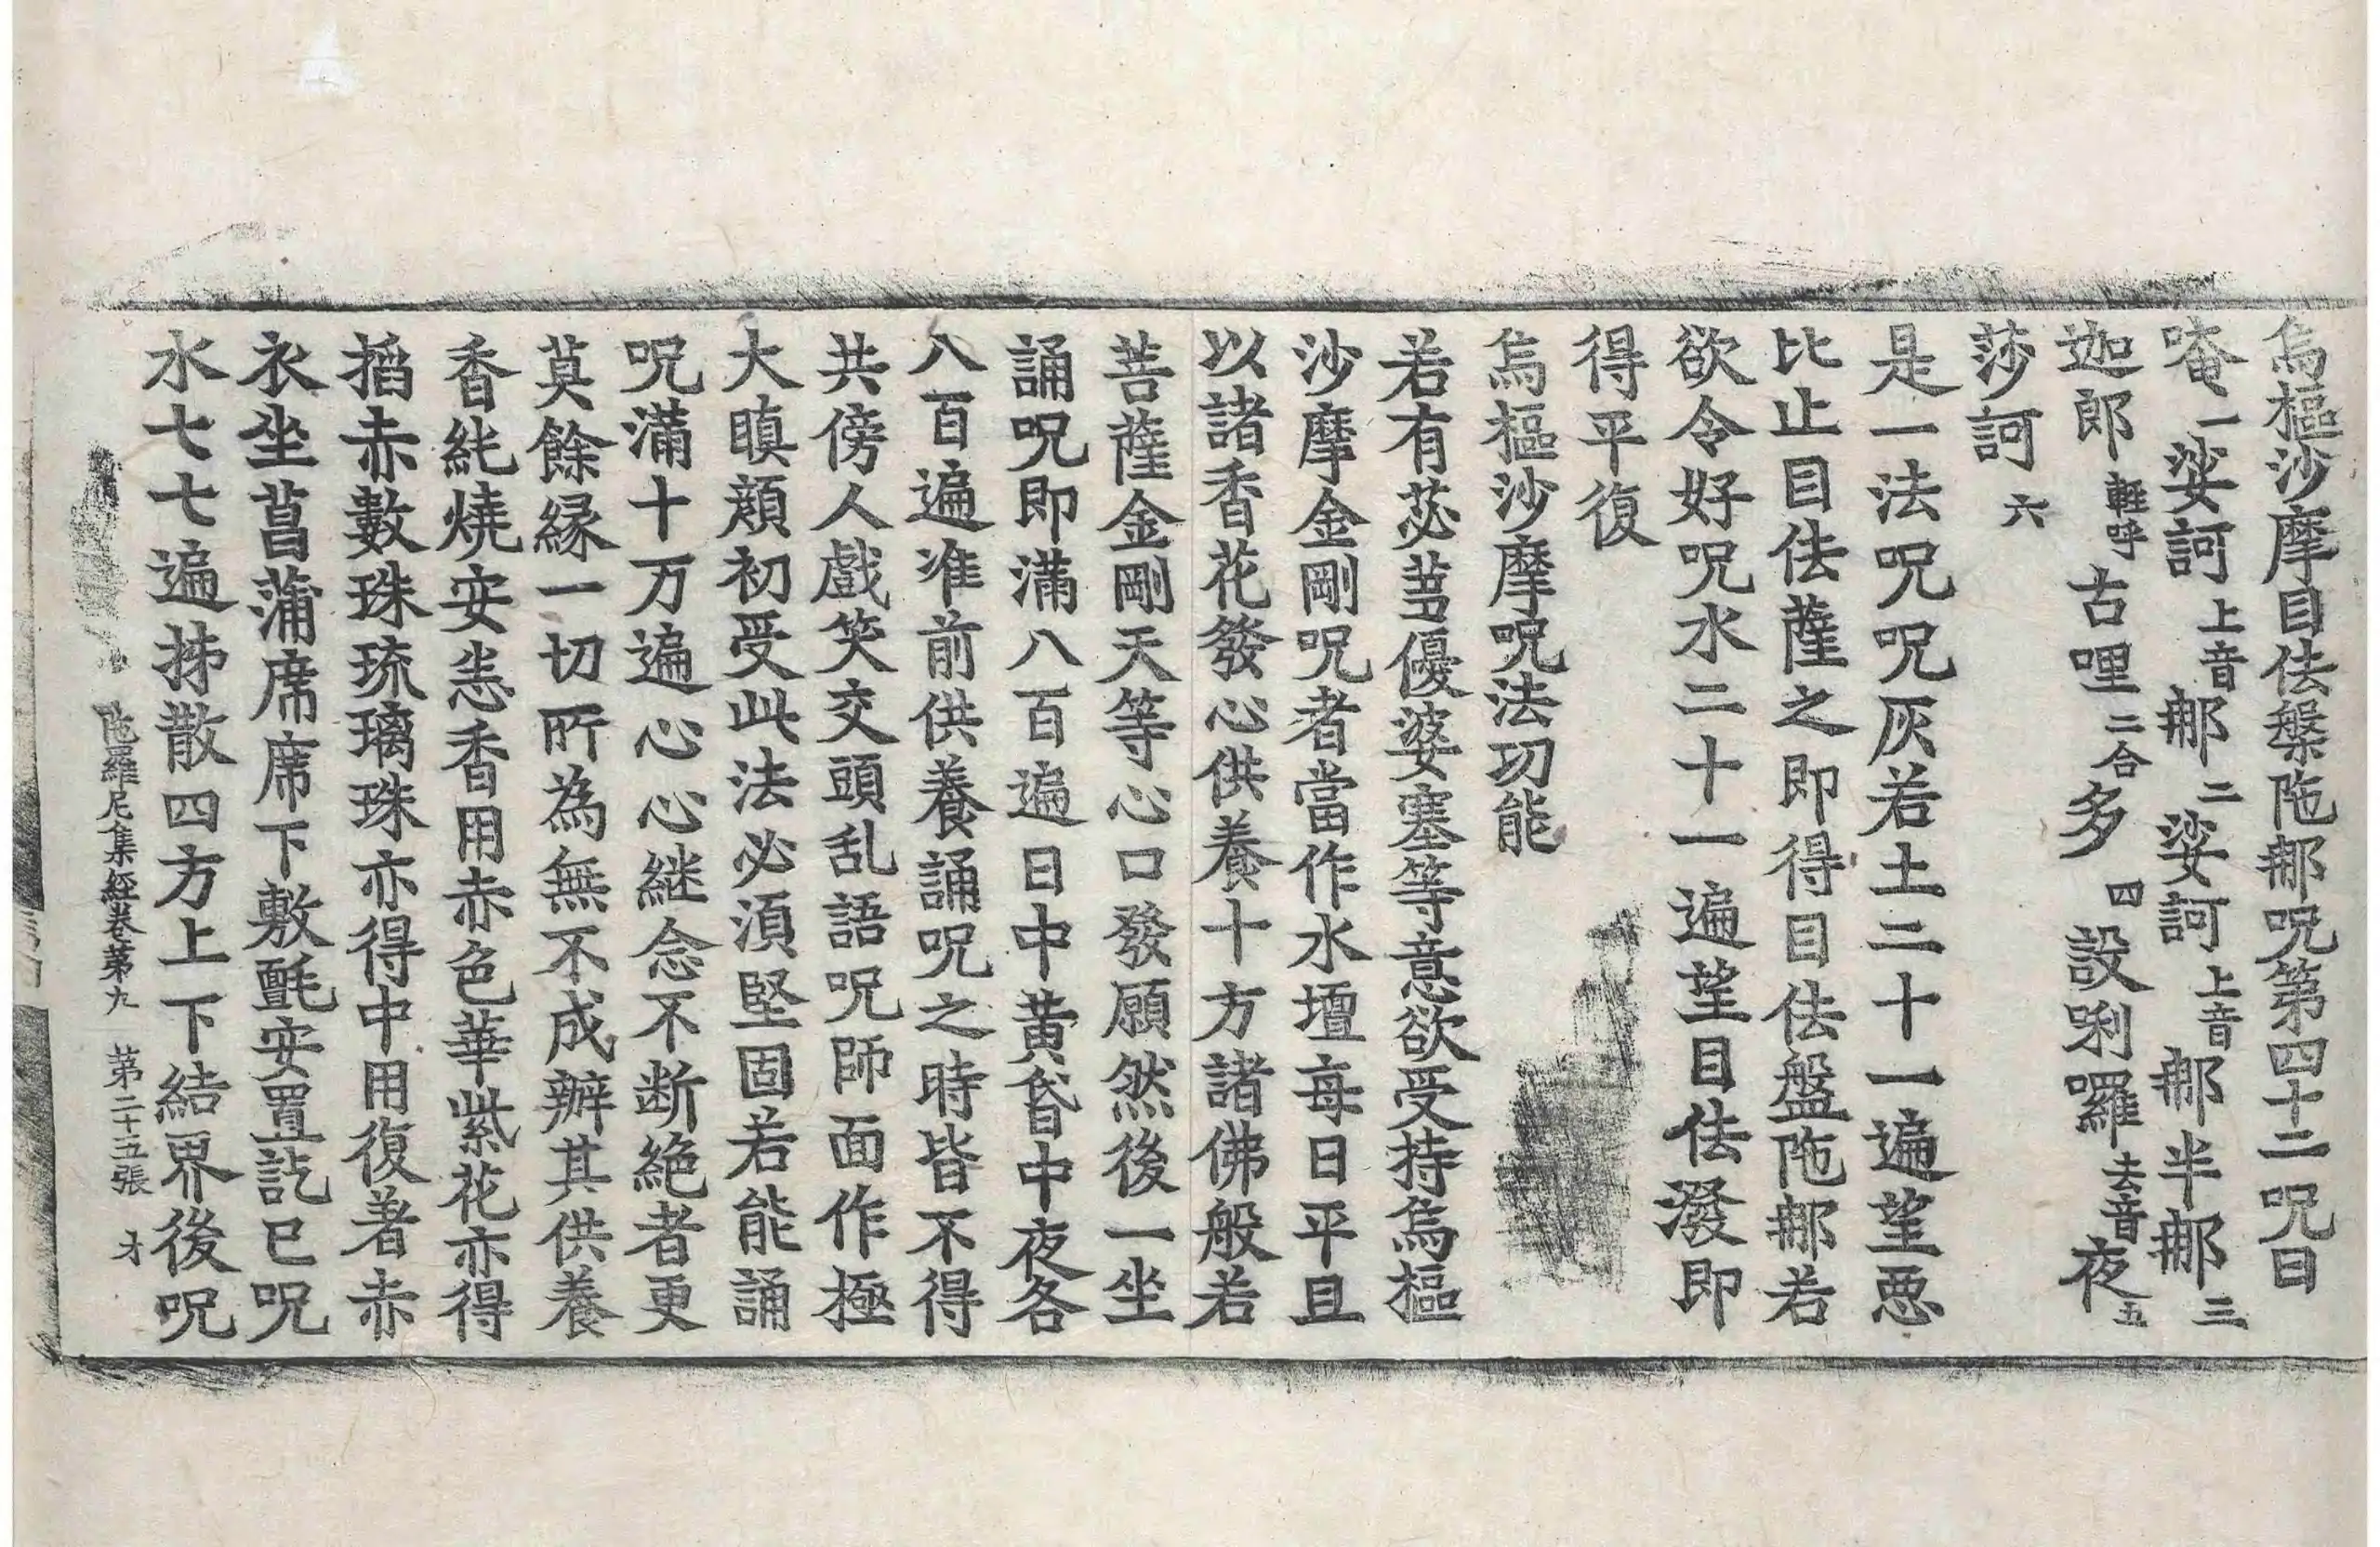 烏樞沙摩目佉槃陁那呪第四十二呪曰
唵一娑訶上音那二娑訶上音那半那三
迦郎輕呼古哩二合多四設唎囉去音夜五
莎訶六
是一法呪呪灰若土二十一遍望惡
比止目佉薩之即得目佉盤陁那若
欲令好呪水二十一遍望目佉潑即
得平復
烏樞沙摩呪法功能
若有苾蒭優婆塞等意欲受持烏樞
沙摩金剛呪者當作水壇每日平旦
以諸香花發心供養十方諸佛般若
菩薩金剛天等心口發願然後一坐
誦呪即滿八百遍日中黃昏中夜各
八百遍准前供養誦呪之時皆不得
共傍人戲笑交頭乱語呪師面作極
大瞋㒹初受此法必湏堅固若能誦
呪滿十万遍心心継念不断絕者更
莫餘緣一切所為無不成辦其供養
香純燒安悉香用赤色華紫花亦得
搯赤數珠琉璃珠亦得中用復著赤
衣坐菖蒲席席下敷氎安置訖已呪
水七七遍㧊散四方上下結界後呪
陁羅尼集經卷第九 第二十五張 才